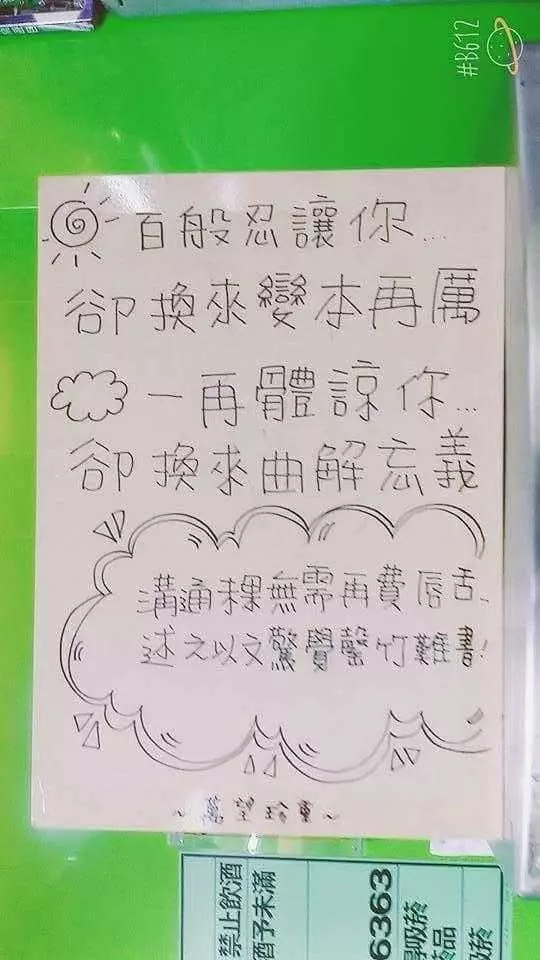 #B612
百般忍讓你...
卻換來變本再厲
一再體諒你...
卻換來曲解忘義
溝通稞無需再費唇舌.
述之以文驚覺罄竹難書!
~萬望珍重~
禁止飲酒
酒予未滿
6363
吸菸
菸品
吸菸